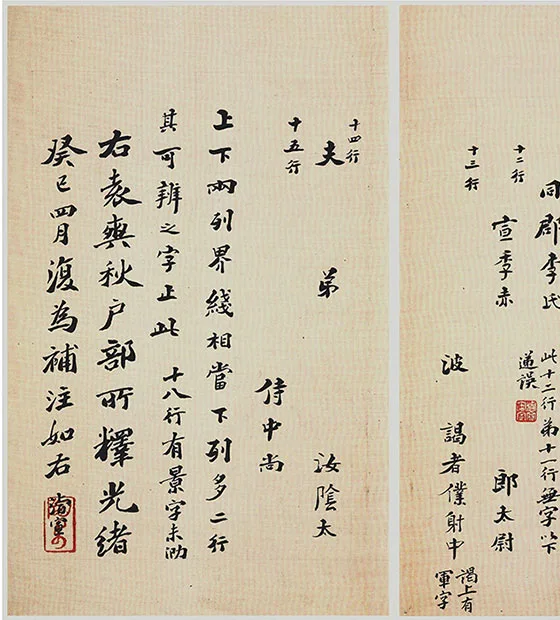 同郡李氏
十二行
宣季赤
此十二行第十一行無字以下
遞誤
郎太尉
十三行
波
謁者僕射中
謁上有
軍字
十四行
夫 弟 汝陰太
十五行
侍中尚
上下兩列界綫相當下列多二行
其可辨之字止此
十八行有景字未泐
右袁輿秋户部所釋光緒
癸巳四月復為補注如右